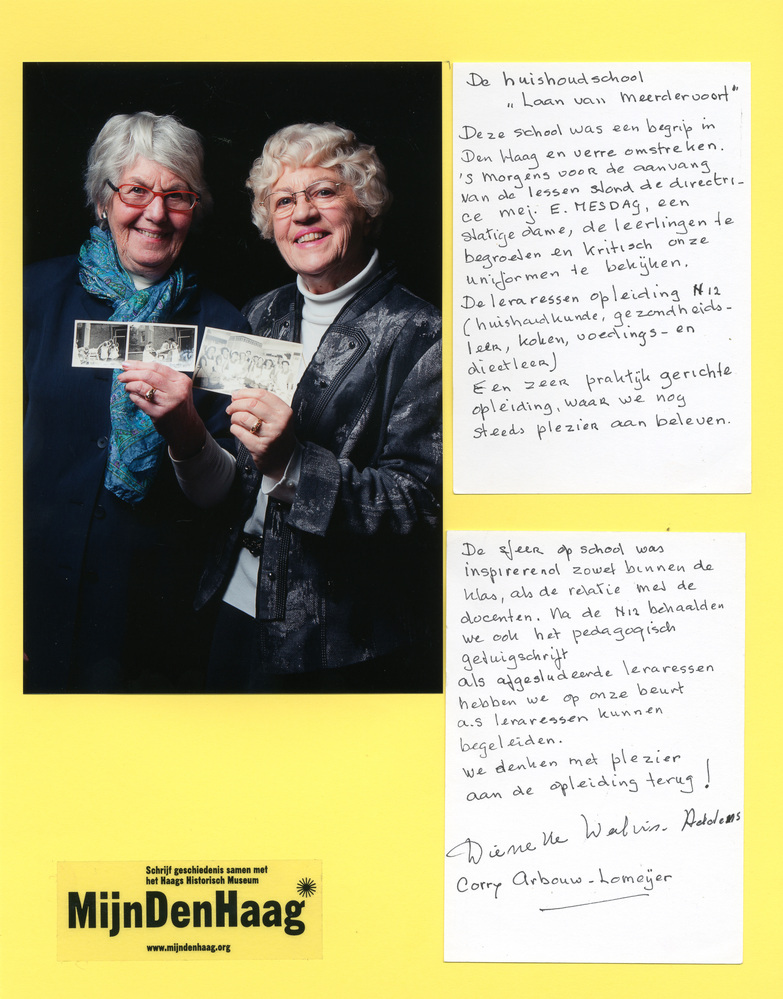 De huishoudschool
„Laan van Meerdervoort"
Deze school was een begrip in
Den Haag en verre omstreken.
's Morgens voor de aanvang
van de lessen stond de directri-
ce mej. E. MESDAG, een
statige dame, de leerlingen te
begroeten en kritisch onze
uniformen te bekijken.
De leraressen opleiding N12
(huishoudkunde, gezondheids-
leer, koken, voedings- en
dieetleer)
Een zeer praktijk gerichte
opleiding, waar we nog
steeds plezier aan beleven.
De sfeer op school was
inspirerend zowel binnen de
klas, als de relatie met de
docenten. Na de N12 behaalden
we ook het pedagogisch
getuigschrift
als afgestudeerde leraressen
hebben we op onze beurt
a.s leraressen kunnen
begeleiden.
We denken met plezier
aan de opleiding terug!
Walvis- Addens
Corry Arbouw-Lomeijer
Schrijf geschiedenis samen met
het Haags Historisch Museum
MijnDenHaag
www.mijndenhaag.org